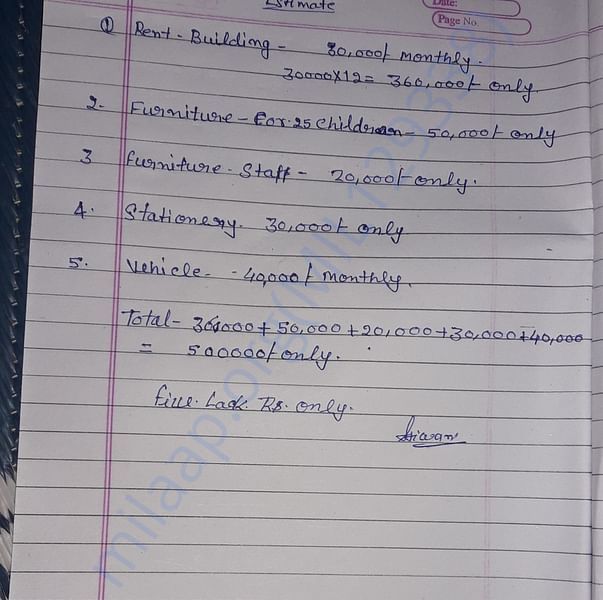 Estimate
Date:
Page No.
① Rent - Building - 30,000/- monthly.
30000x12 = 360,000/- only
2. Furniture - for 25 children - 50,000/- only
3 furniture - Staff - 20,000/- only.
4. Stationery. 30,000/- only
5. Vehicle - - 40,000/- monthly.
Total - 360000 + 50,000 + 20,000 + 30,000 + 40,000
= 500000/- only.
five. Lack. Rs. only.
milaap.org(MIL1293381